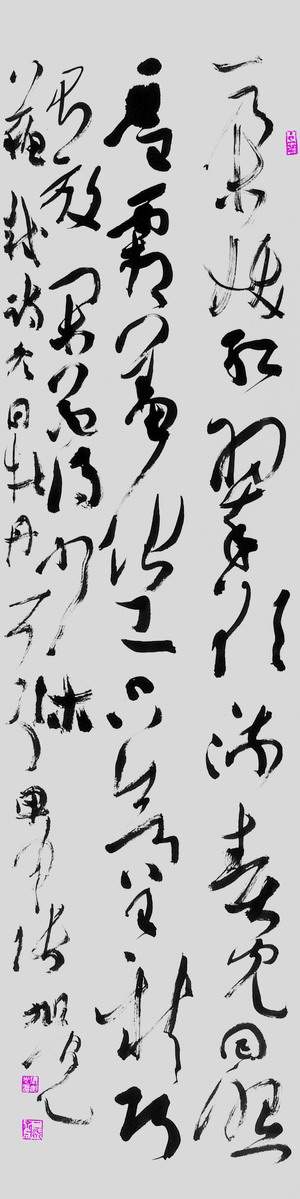 一朵妖紅翠欲流春光回照
雪霜羞化工只欲呈新巧
不放閑花得少休
蘇軾詩冬日牡丹 甲申張旭光